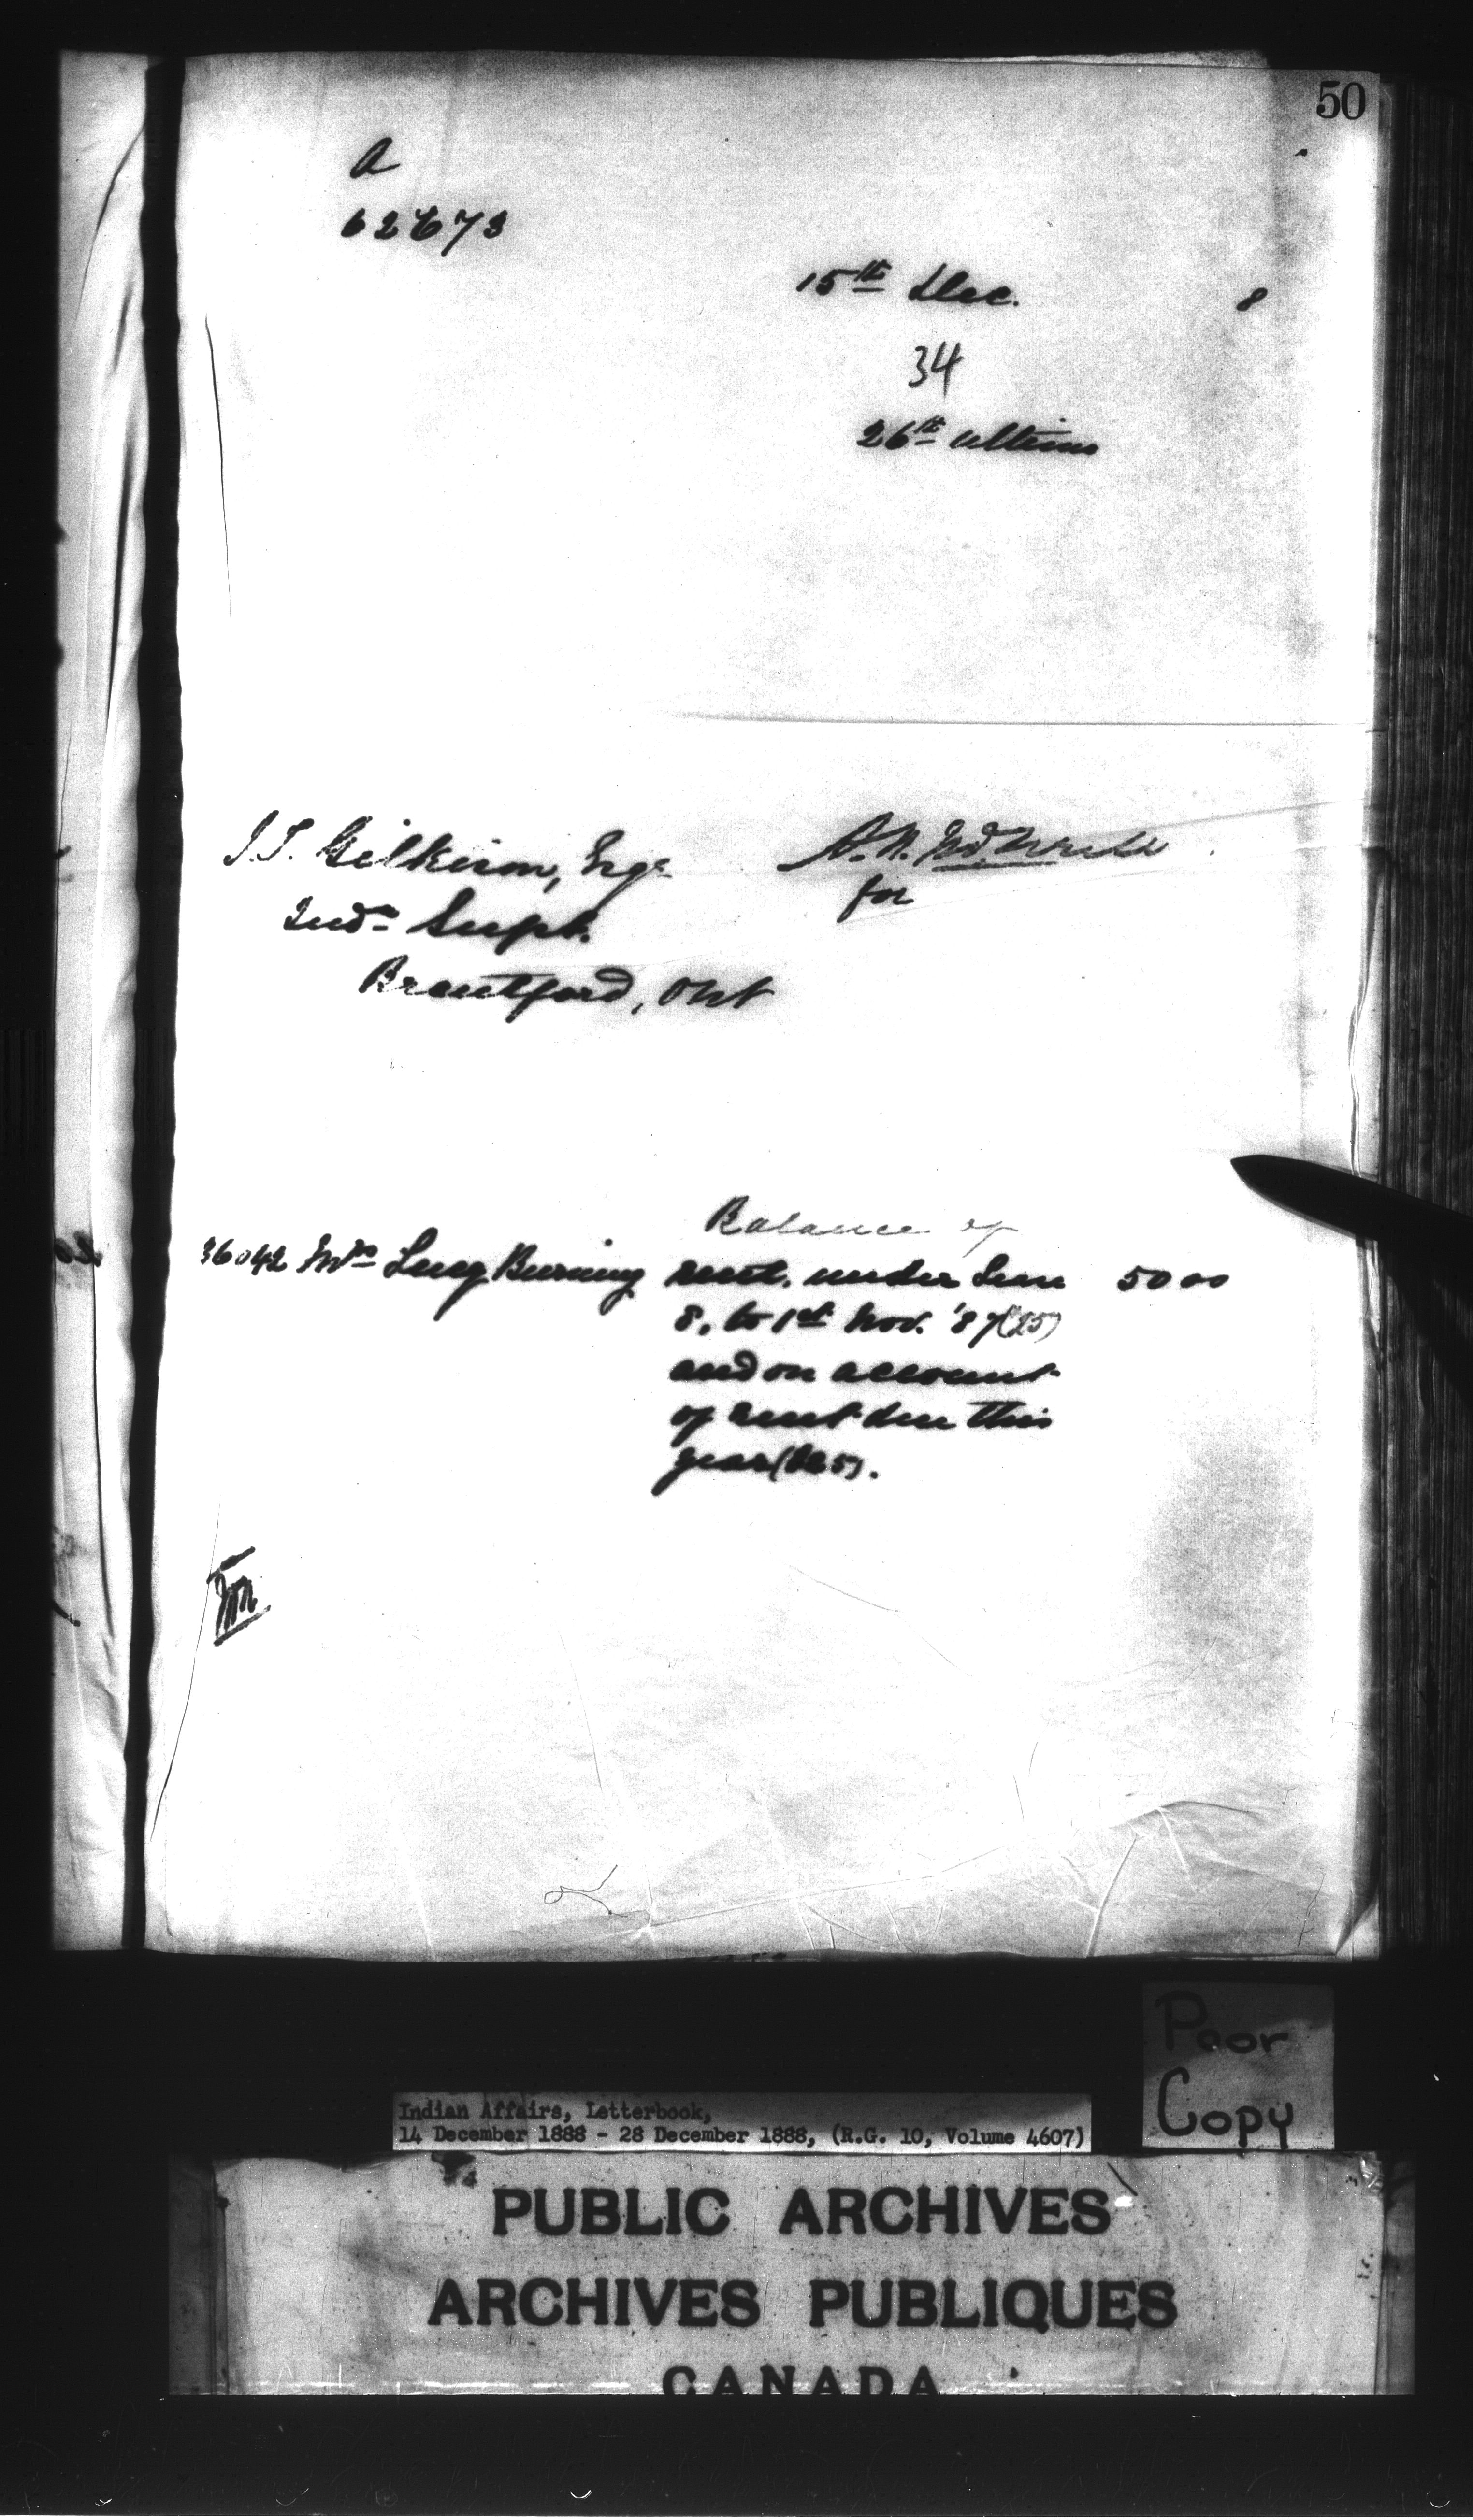 50
A
62673
15th Dec. 8
34
26th ultimo
J.T. Gilkison, Esqr
Indn Supt.
Brantford, Ont
A.N. McNeill
for
Balance of
36042 Mrs Lucy Burning rent under Lease 50 00
8, to 1st Nov. '87 (25)
and on account
of rent due this
year ($25).
Poor
Copy
Indian Affairs, Letterbook,
14 December 1888 - 28 December 1888, (R.G. 10, Volume 4607)
PUBLIC ARCHIVES
ARCHIVES PUBLIQUES
CANADA